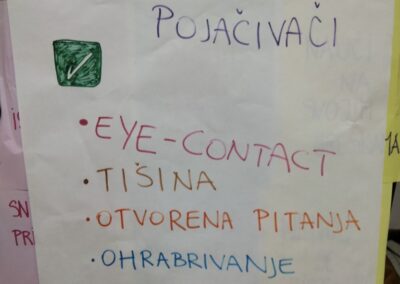 POJAČIVAČI
• EYE-CONTACT
• TIŠINA
• OTVORENA PITANJA
• OHRABRIVANJE
SN
PRI